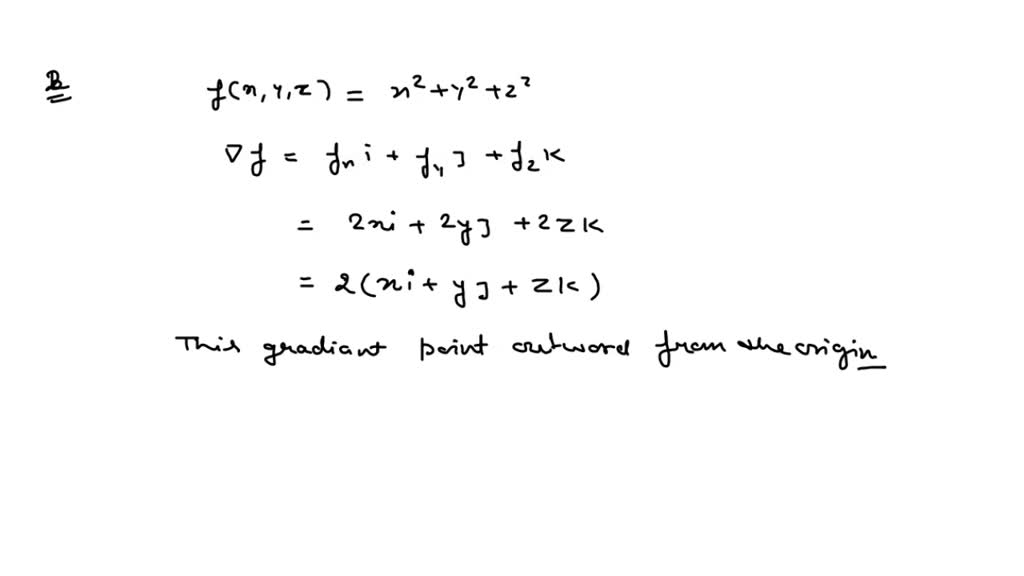 B
f(x, y, z) = x² + y² + z²
∇f = fₓ i + f_y j + f_z k
= 2xi + 2yj + 2zk
= 2(xi + yj + zk)
This gradiant point outword from the origin